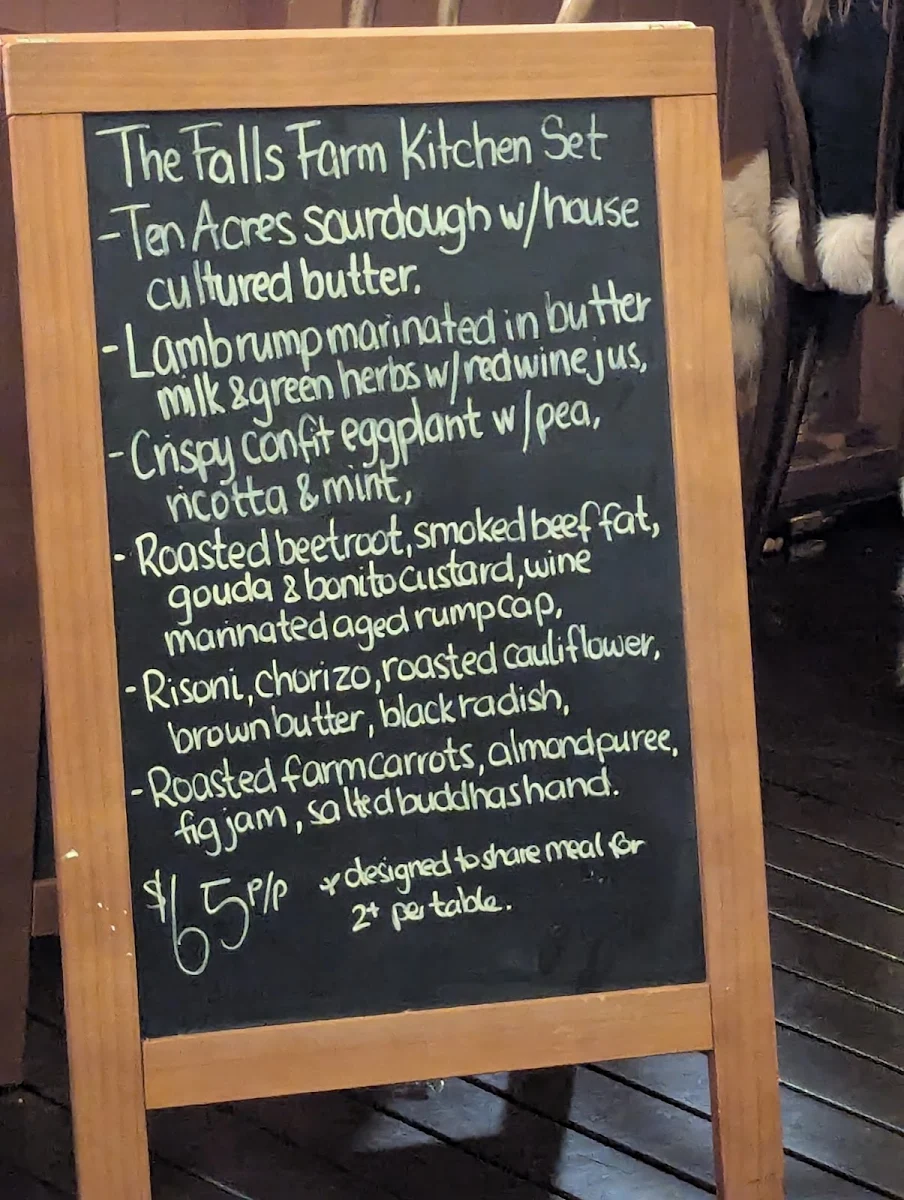 The Falls Farm Kitchen Set
- Ten Acres sourdough w/house
cultured butter.
- Lamb rump marinated in butter
milk & green herbs w/ red wine jus,
- Crispy confit eggplant w/ pea,
ricotta & mint,
- Roasted beetroot, smoked beef fat,
gouda & bonito custard, wine
marinated aged rump cap,
- Risoni, chorizo, roasted cauliflower,
brown butter, black radish,
- Roasted farm carrots, almond puree,
fig jam, salted buddhas hand.
$65 P/P * designed to share meal for
2+ per table.